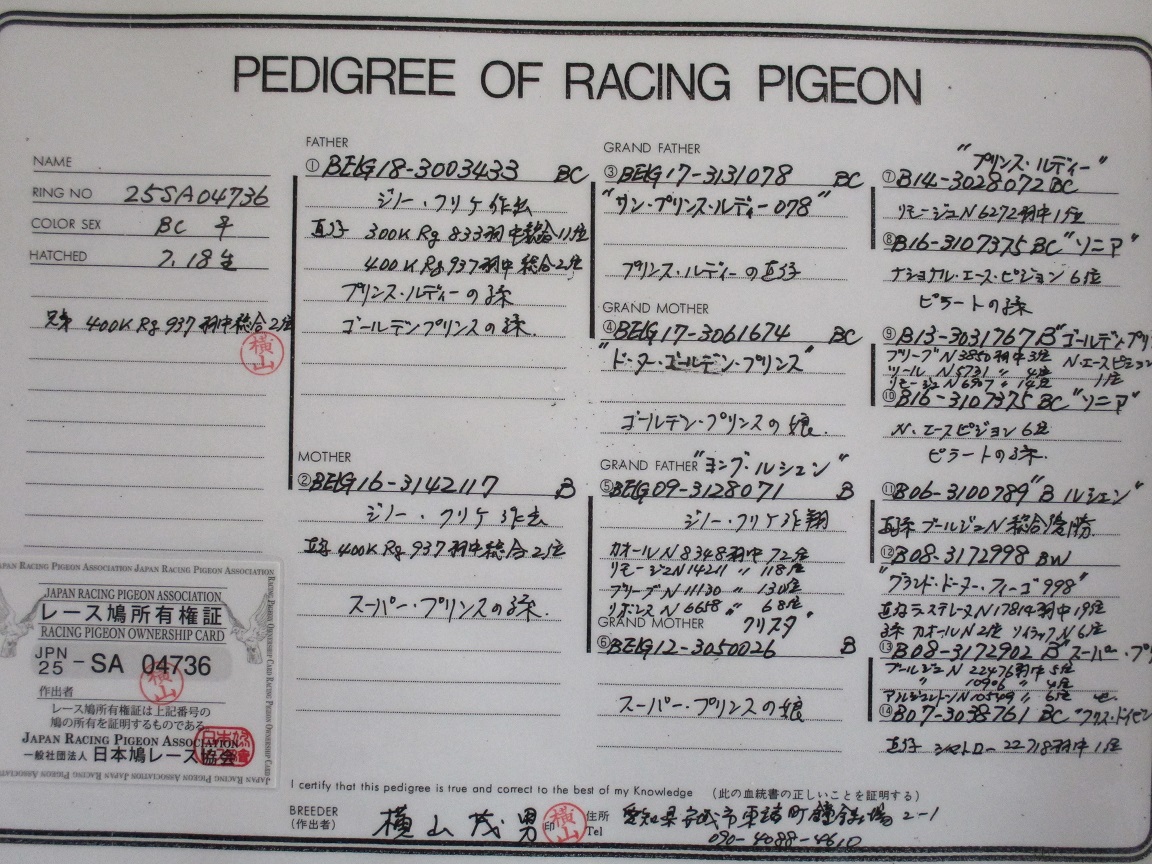 PEDIGREE OF RACING PIGEON
NAME
RING NO 25SA04736
COLOR SEX BC ♀
HATCHED 7.18生
兄弟 400K Rg 937羽中総合2位
横山
FATHER
① BELG18-3003433 BC
ジノー・クリケ作出
直仔 300K Rg 833羽中総合11位
400K Rg 937羽中総合2位
プリンス・ルディーの孫
ゴールデンプリンスの孫.
MOTHER
② BELG16-3142117 B
ジノー・クリケ作出
直仔 400K Rg 937羽中総合2位
スーパー・プリンスの孫.
GRAND FATHER
③ BELG17-3131078 BC
"サン・プリンス・ルディー078"
プリンス・ルディーの直仔
GRAND MOTHER
④ BELG17-3061674 BC
"ドーター・ゴールデン・プリンス"
ゴールデン・プリンスの娘.
GRAND FATHER "ヨング・ルシェン"
⑤ BELG09-3128071 B
ジノー・クリケ作翔
カオールN8348羽中72位
リモージュN14211 〃 118位
ブリーブN11130 〃 130位
リボンヌN6658 〃 68位
GRAND MOTHER "クリスタ"
⑥ BELG12-3050026 B
スーパー・プリンスの娘
"プリンス・ルディー"
⑦ B14-3028072 BC
リモージュN6272羽中1位
⑧ B16-3107375 BC "ソニア"
ナショナル・エース・ピジョン6位
ピラートの孫
⑨ B13-3031767 B "ゴールデン・プリ
ブリーブN3850羽中3位 N.エースピジョン
ツールN5731 〃 4位 1位
リモージュN6907 〃 14位
⑩ B16-3107375 BC "ソニア"
N.エースピジョン6位
ピラートの孫.
⑪ B06-3100789 "B ルシェン"
直仔ブールジュN総合優勝.
⑫ B08-3172998 BW
"グランド・ドーター・フィーゴ998"
直仔ラステレーヌN17814羽中19位
孫 カオールN2位 ソイヤックN6位
⑬ B08-3172902 B "スーパー・プリ
ブールジュN 22476羽中5位
〃 10906 〃 4位
アルジャントンN10549 〃 6位
⑭ B07-3038761 BC "クリス・ドイゼン
直仔 シャトロー22718羽中1位
JAPAN RACING PIGEON ASSOCIATION JAPAN RACING PIGEON ASSOCIATION
JAPAN RACING PIGEON ASSOCIATION
レース鳩所有権証
RACING PIGEON OWNERSHIP CARD
JPN
25 - SA 04736
作出者
横山
レース鳩所有権証は上記番号の
鳩の所有を証明するものである
JAPAN RACING PIGEON ASSOCIATION
一般社団法人 日本鳩レース協会
I certify that this pedigree is true and correct to the best of my Knowledge (此の血統書の正しいことを証明する)
BREEDER
(作出者) 横山茂男 印 横山
住所 愛知県安城市東端町鎌倉場2-1
Tel 090-4088-4610